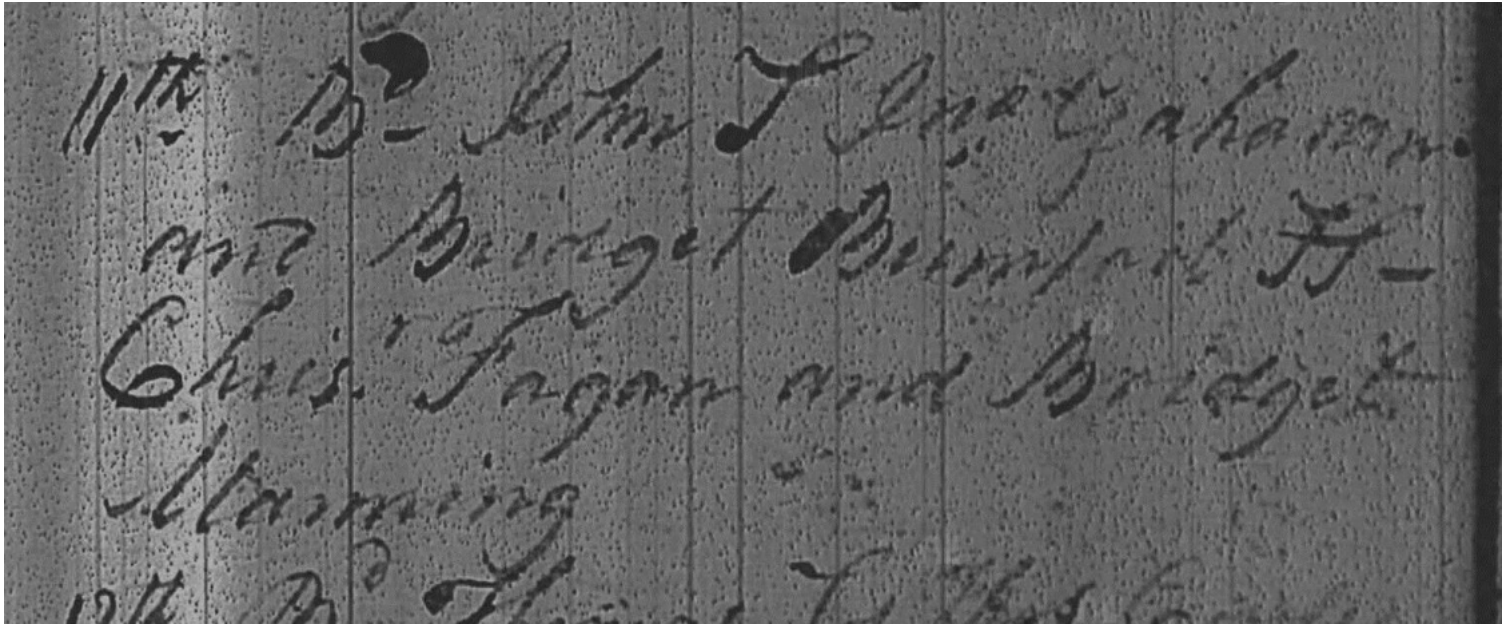 11th Bd John S Jno Gaharan.
and Bridget Bumford SS-
Chrisr Fagan and Bridget
Manning
12th Bd Thomas S Thos